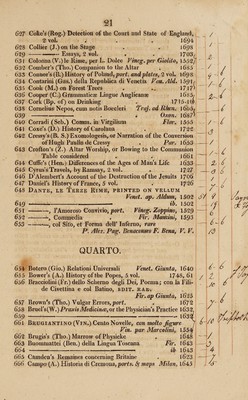 21
627 Coke's (Rog.) Detection of the Court and State of England,
2 vol. 1694
628 Collier (J.) on the Stage 1698
629 ——— Essays, 2 vol. 1703,
631 Colonna (V.) le Rime, par L. Dolce Vineg. per Giolito, 1552
632 Comber's (Tho.) Companion to the Altar 1685
633 Connor's (B.) History of Poland, port. and plates, 2 vol. 1698
634 Contarini (Gas.) della Republica di Venetia Ven. Ald. 1591
635 Cook (M.) on Forest Trees 1717
636 Cooper (C.) Grammatica Linguæ Anglicanæ 1685
637 Cork (Bp. of) on Drinking 1715-19
638 Cornelius Nepos, cum notis Boecleri Traj. ad Rhen. 1665
639 ——— Oxon. 1687
640 Corradi (Seb.) Comm. in Virgilium Flor. 1555
641 Coxe's (D.) History of Carolana 1722
642 Cressy's (B. S.) Exomologesis, or Narration of the Conversion
of Hugh Paulin de Cressy Par. 1653
643 Crofton's (Z.) Altar Worship, or Bowing to the Communion
Table considered 1661
644 Cuffe's (Hen.) Differences of the Ages of Man's Life 1633
645 Cyrus's Travels, by Ramsay, 2 vol. 1727
646 D'Alembert's Account of the Destruction of the Jesuits 1766
647 Daniel's History of France, 5 vol. 1726
648 DANTE, LE TERZE RIME, PRINTED ON VELLUM
Venet. ap. Aldum, 1502
649 ——— ib. 1502
———, l'Amoroso Convivio, port. Vineg. Zoppino, 1529
———, Commedia Fir. Manzini, 1595
———, col Sito, et Forma dell' Inferno, rare
P. Alex. Pag. Benacenses F. Bena. V. V.
QUARTO.
654 Botero (Gio.) Relationi Universali Venet. Giunta, 1640
655 Bower's (A.) History of the Popes, 5 vol. 1748, 61
656 Bracciolini (Fr.) dello Scherno degli Dei, Poema; con la Filide
Civettina e col Batino, EDIT. RAR.
Fir. ap Giunta, 1625
657 Brown's (Tho.) Vulgar Errors, port. 1672
658 Bruel's (W.) Praxis Medicinæ, or the Physician's Practice 1632,
1639
661 BRUGIANTINO (VIN.) Cento Novelle, con molte figure
Vin. par Marcolini, 1554
662 Brugis' (Tho.) Marrow of Physicke 1648
663 Buommattei (Ben.) della Lingua Toscana Fir. 1643
664 ——— ib 1643
665 Camden's Remaines concerning Britaine 1623
666 Campo (A.) Historia di Cremona, ports. & maps Milan, 1645